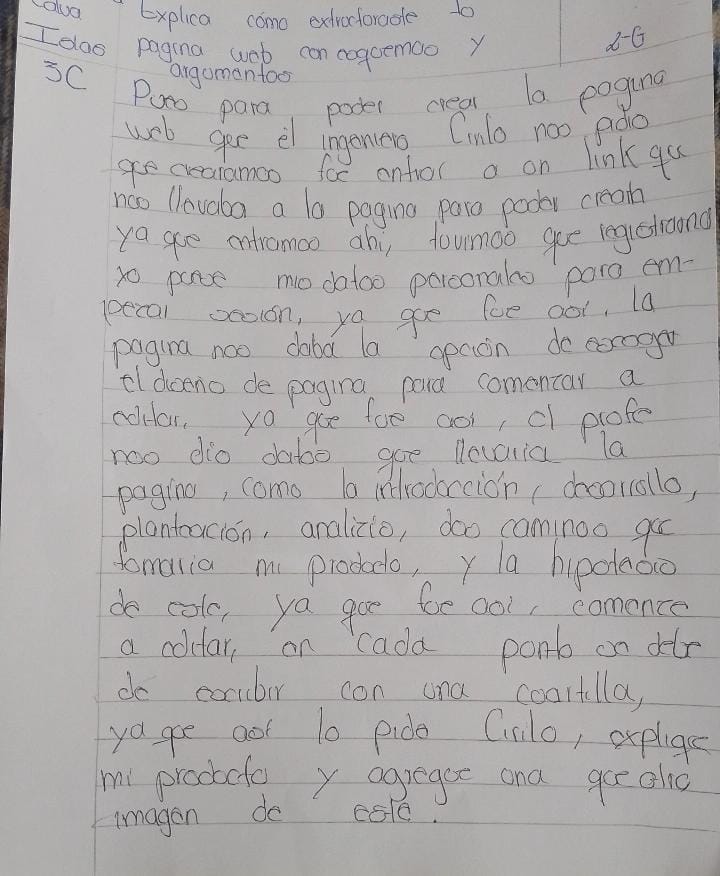 Explica cómo estructuraste tu
Idas pagina web con esquemas y 2-G
3C argumentos
Pues para poder crear la pagina
web que el ingeniero Cirilo nos pidio
que crearamos fue entrar a un link que
nos llevaba a la pagina para poder crearla
ya que entramos ahi, tuvimos que registrarnos
yo puse mis datos personales para em-
pezar sesión, ya que fue asi, la
pagina nos daba la opción de escoger
el diseño de pagina para comenzar a
editar, ya que fue asi, el profe
nos dio datos que llevaria la
pagina, como la introducción, desarrollo,
planteación, analizis, dos caminos que
tomaria mi producto, y la hipotesis
de este, ya que fue asi, comence
a editar, en cada punto se debe
de escribir con una cuartilla,
ya que asi lo pide Cirilo, explique
mi producto y agregue una que otra
imagen de este.